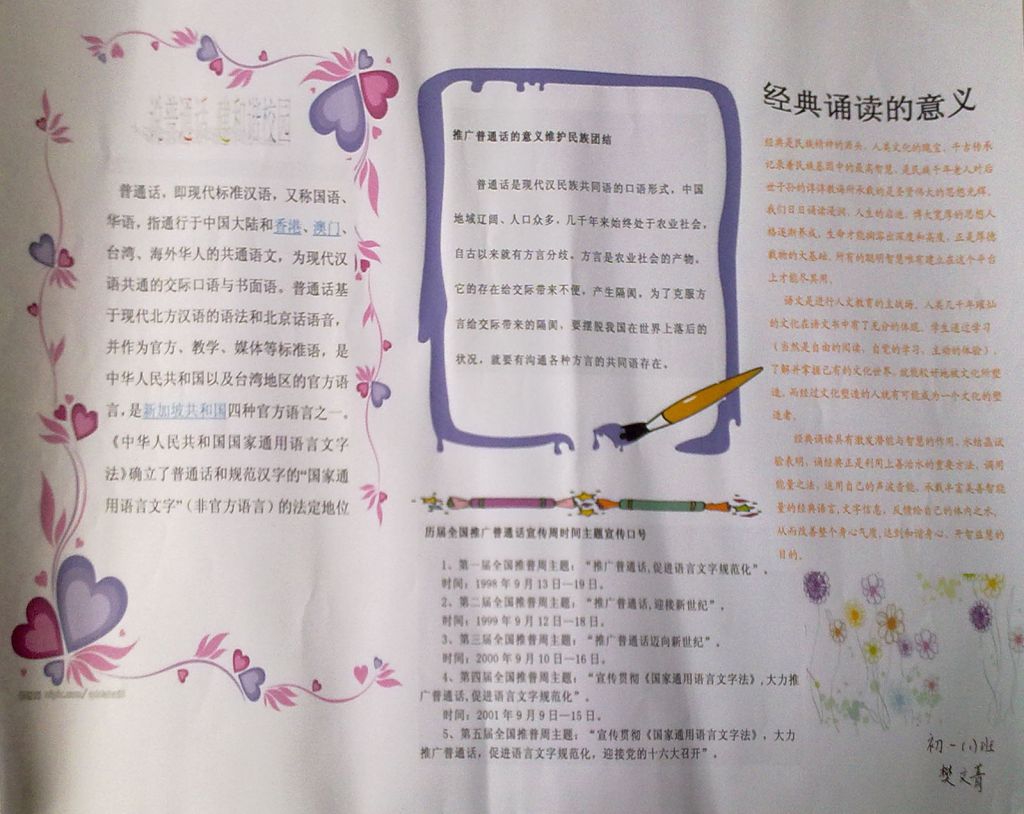 普通话，即现代标准汉语，又称国语、
华语，指通行于中国大陆和香港、澳门、
台湾、海外华人的共通语文，为现代汉
语共通的交际口语与书面语。普通话基
于现代北方汉语的语法和北京话语音，
并作为官方、教学、媒体等标准语，是
中华人民共和国以及台湾地区的官方语
言，是新加坡共和国四种官方语言之一。
《中华人民共和国国家通用语言文字
法》确立了普通话和规范汉字的“国家通
用语言文字”（非官方语言）的法定地位
推广普通话的意义维护民族团结
普通话是现代汉民族共同语的口语形式，中国
地域辽阔、人口众多，几千年来始终处于农业社会，
自古以来就有方言分歧。方言是农业社会的产物。
它的存在给交际带来不便，产生隔阂，为了克服方
言给交际带来的隔阂，要摆脱我国在世界上落后的
状况，就要有沟通各种方言的共同语存在。
历届全国推广普通话宣传周时间主题宣传口号
1、第一届全国推普周主题：“推广普通话,促进语言文字规范化”。
时间：1998年9月13日—19日。
2、第二届全国推普周主题：“推广普通话,迎接新世纪”。
时间：1999年9月12日—18日。
3、第三届全国推普周主题：“推广普通话迈向新世纪”。
时间：2000年9月10日—16日。
4、第四届全国推普周主题：“宣传贯彻《国家通用语言文字法》,大力推
广普通话,促进语言文字规范化”。
时间：2001年9月9日—15日。
5、第五届全国推普周主题：“宣传贯彻《国家通用语言文字法》，大力
推广普通话，促进语言文字规范化，迎接党的十六大召开”。
经典诵读的意义
经典是民族精神的源头，人类文化的瑰宝，千古传承
记录着民族基因中的最高智慧，是民族千年老人对后
世子孙的谆谆教诲所承载的是圣贤伟大的思想光辉。
我们日日诵读浸润，人生的启迪，博大宽厚的思想人
格逐渐养成，生命才能掘深出深度和高度，正是厚德
载物的大基础，所有的聪明智慧唯有建立在这个平台
上才能尽其用。
语文是进行人文教育的主战场，人类几千年璀灿
的文化在语文书中有了充分的体现。学生通过学习
（当然是自由的阅读，自觉的学习，主动的体验），
了解并掌握已有的文化世界，就能较好地被文化所塑
造。而经过文化塑造的人就有可能成为一个文化的塑
造者。
经典诵读具有激发潜能与智慧的作用。水结晶试
验表明，诵经典正是利用上善治水的重要方法，调用
能量之法，运用自己的声波音能，承载丰富美善智能
量的经典语言,文字信息，反馈给自己的体内之水，
从而改善整个身心气质,达到和谐身心、开智益慧的
目的。
初一(1)班
樊文菁